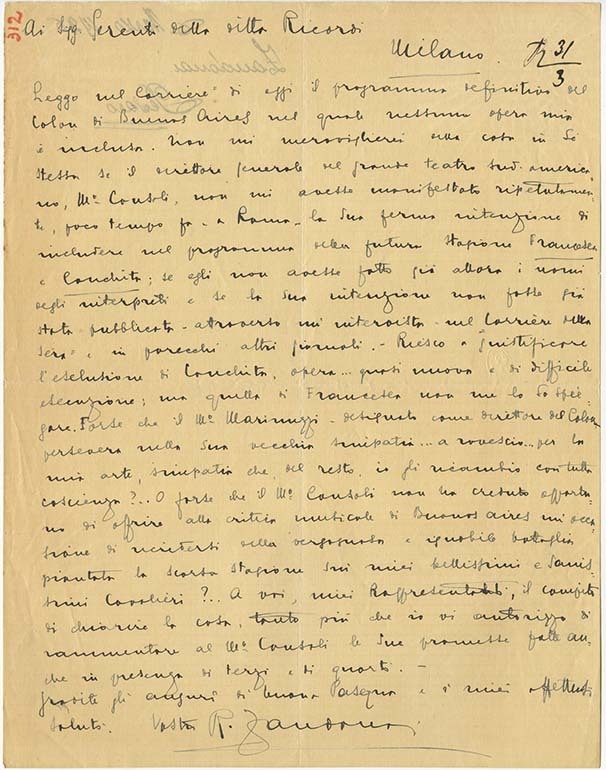 312
Ai Sig. Gerenti della ditta Ricordi
Milano. 31
3
Leggo nel "Corriere" di oggi il programma definitivo del
Colon di Buenos Aires nel quale nessuna opera mia
è inclusa. Non mi meraviglierei della cosa in Sè
stessa se il direttore generale del grande teatro sud-america-
no, Mº Consoli, non mi avesse manifestato ripetutamen-
te, poco tempo fa - a Roma - la Sua ferma intenzione di
includere nel programma della futura stagione Francesca
e Conchita; se egli non avesse fatto già allora i nomi
degli interpreti e se la Sua intenzione non fosse già
stata pubblicata - attraverso un'intervista - nel "Corriere della
Sera" e in parecchi altri giornali. - Riesco a giustificare
l'esclusione di Conchita, opera... quasi nuova e di difficile
esecuzione; ma quella di Francesca non me la So spie-
gare. Forse che il Mº Marinuzzi - designato come direttore del Colon
persevera nella Sua vecchia simpatia... a rovescio... per la
mia arte, simpatia che, del resto, io gli ricambio con tutta
coscienza?.. O forse che il Mº Consoli non ha creduto opportu-
no di offrire alla critica musicale di Buenos Aires un'occa-
sione di ricredersi della vergognosa e ignobile battaglia
piantata la scorsa stagione sui miei bellissimi e Sanis-
simi Cavalieri?.. A voi, miei Rappresentanti, il compito
di chiarire la cosa, tanto più che io vi autorizzo di
rammentare al Mº Consoli le Sue promesse fatte an-
che in presenza di terzi e di quarti. -
Gradite gli auguri di buona Pasqua e i miei affettuosi
Saluti. Vostro R. Zandonai